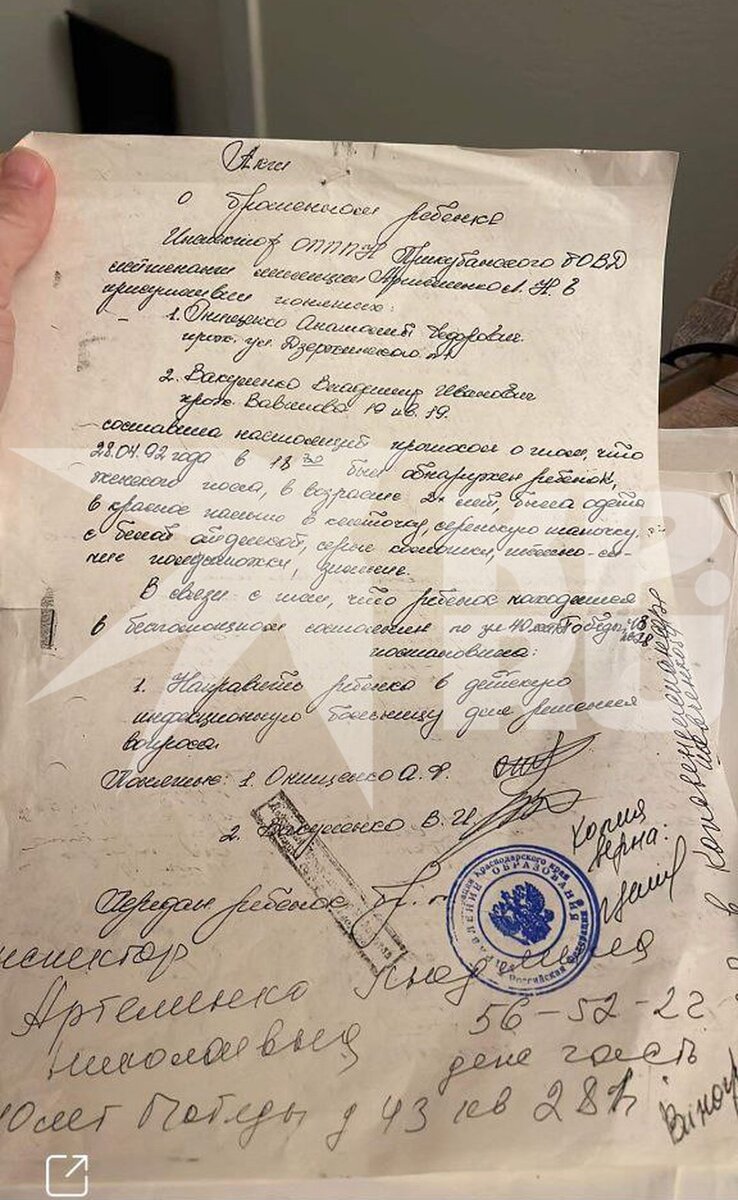 Акт
о брошенном ребенке
Инспектор ОПППН Прикубанского РОВД
лейтенант милиции Артеменко Л. Н. в
присутствии понятых:
1. Онищенко Анатолий Федорович
прож. ул. Дзержинского
2. Вакуленко Владимир Иванович
прож. Вавилова 19 кв. 19.
составила настоящий протокол о том, что
28.04.92 года в 18 30 был обнаружен ребенок,
женского пола, в возрасте 2х лет, была одета
в красное пальто в клеточку, серенькую шапочку
с белой, серые колготки,
зимние.
В связи с тем, что ребенок находился
в беспомощном состоянии по ул 40 лет Победы
постановила:
1. Направить ребенка в детскую
инфекционную больницу для решения
вопроса.
Понятые: 1. Онищенко А. Ф.
2. Вакуленко В. И
Копия
верна:
Передан ребенок
Краснодарского края
ОБРАЗОВАНИЯ
Российской Федерации
инспектор
Артеменко Людмила
Николаевна 56-52-22
40 лет Победы д 43 кв 281